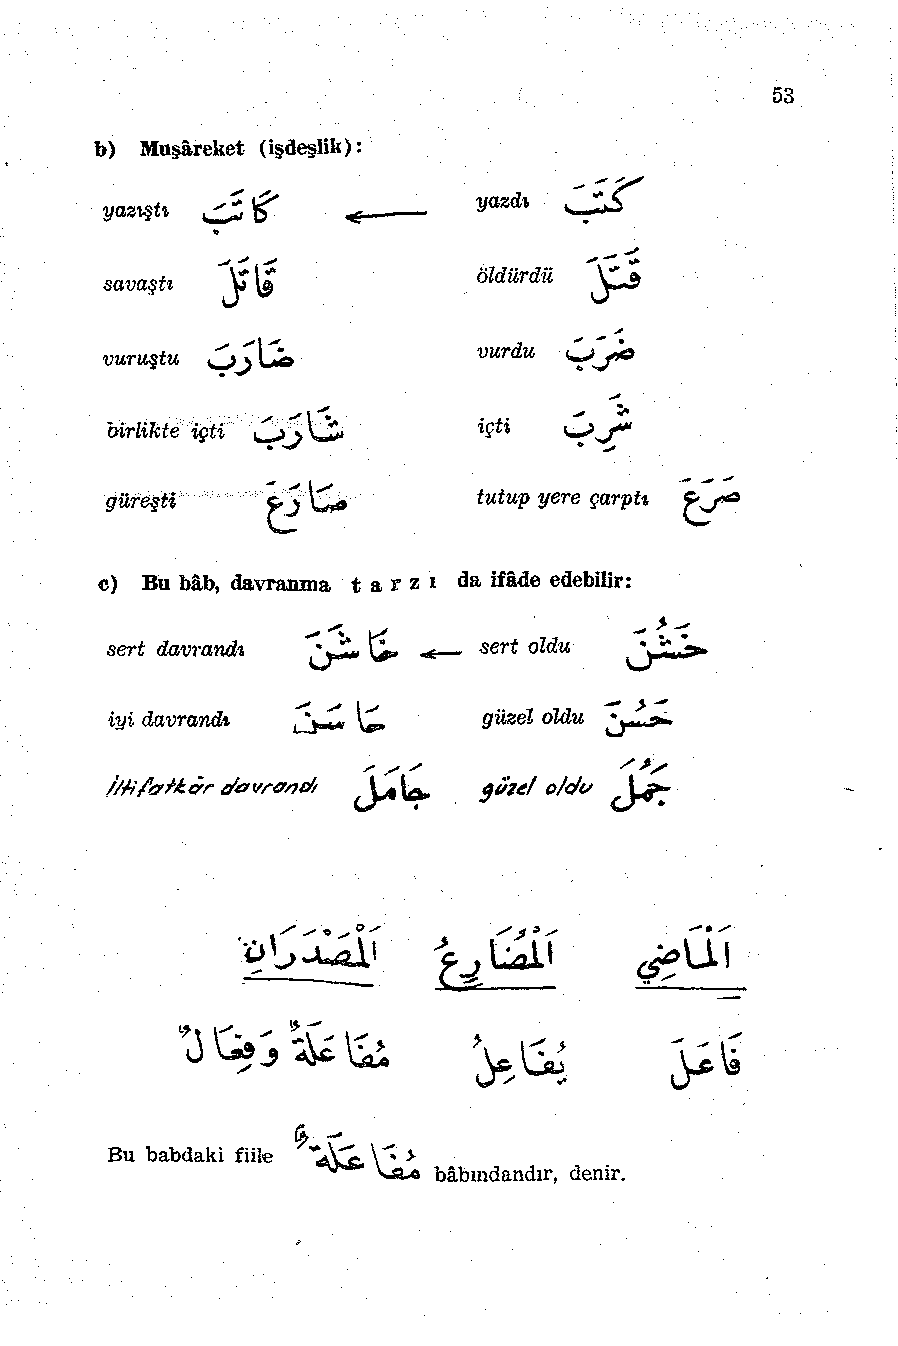 53
b) Muşâreket (işdeşlik):
yazıştı كَاتَبَ ← yazdı كَتَبَ
savaştı قَاتَلَ öldürdü قَتَلَ
vuruştu ضَارَبَ vurdu ضَرَبَ
birlikte içti شَارَبَ içti شَرِبَ
güreşti صَارَعَ tutup yere çarptı صَرَعَ
c) Bu bâb, davranma tarzı da ifâde edebilir:
sert davrandı خَاشَنَ ← sert oldu خَشُنَ
iyi davrandı حَاسَنَ güzel oldu حَسُنَ
iltifatkâr davrandı جَامَلَ güzel oldu جَمُلَ
اَلْمَاضِي اَلْمُضَارِعُ اَلْمَصْدَرَانِ
فَاعَلَ يُفَاعِلُ مُفَاعَلَةٌ وَفِعَالٌ
Bu babdaki fiile مُفَاعَلَةٌ bâbındandır, denir.